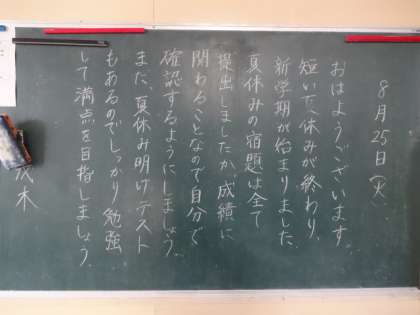 8月25日(火)
おはようございます。
短いた休みが終わり、
新学期が始まりました。
夏休みの宿題は全て
提出しましたか。成績に
関わることなので自分で
確認するようにしましょう。
まだ、夏休み明けテスト
もあるのでしっかり勉強
して満点を目指しましょう。
木